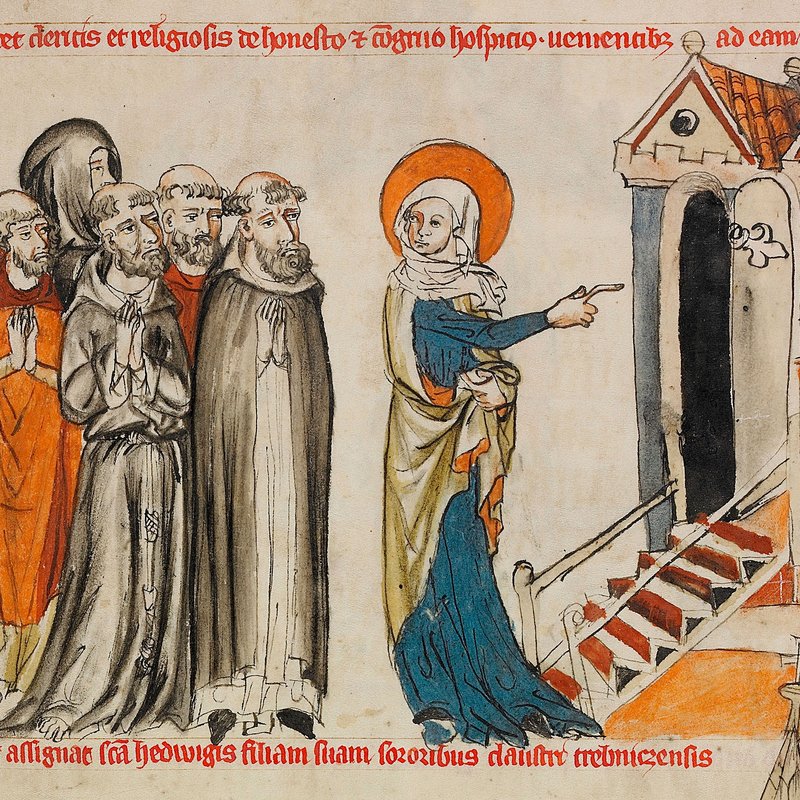 et clericis et religiosis de honesto ⁊ cōgruo hospicio · uenientibꝫ ad eam
assignat sc̄a hedwigis filiam suam sororibus claustri trebniczensis